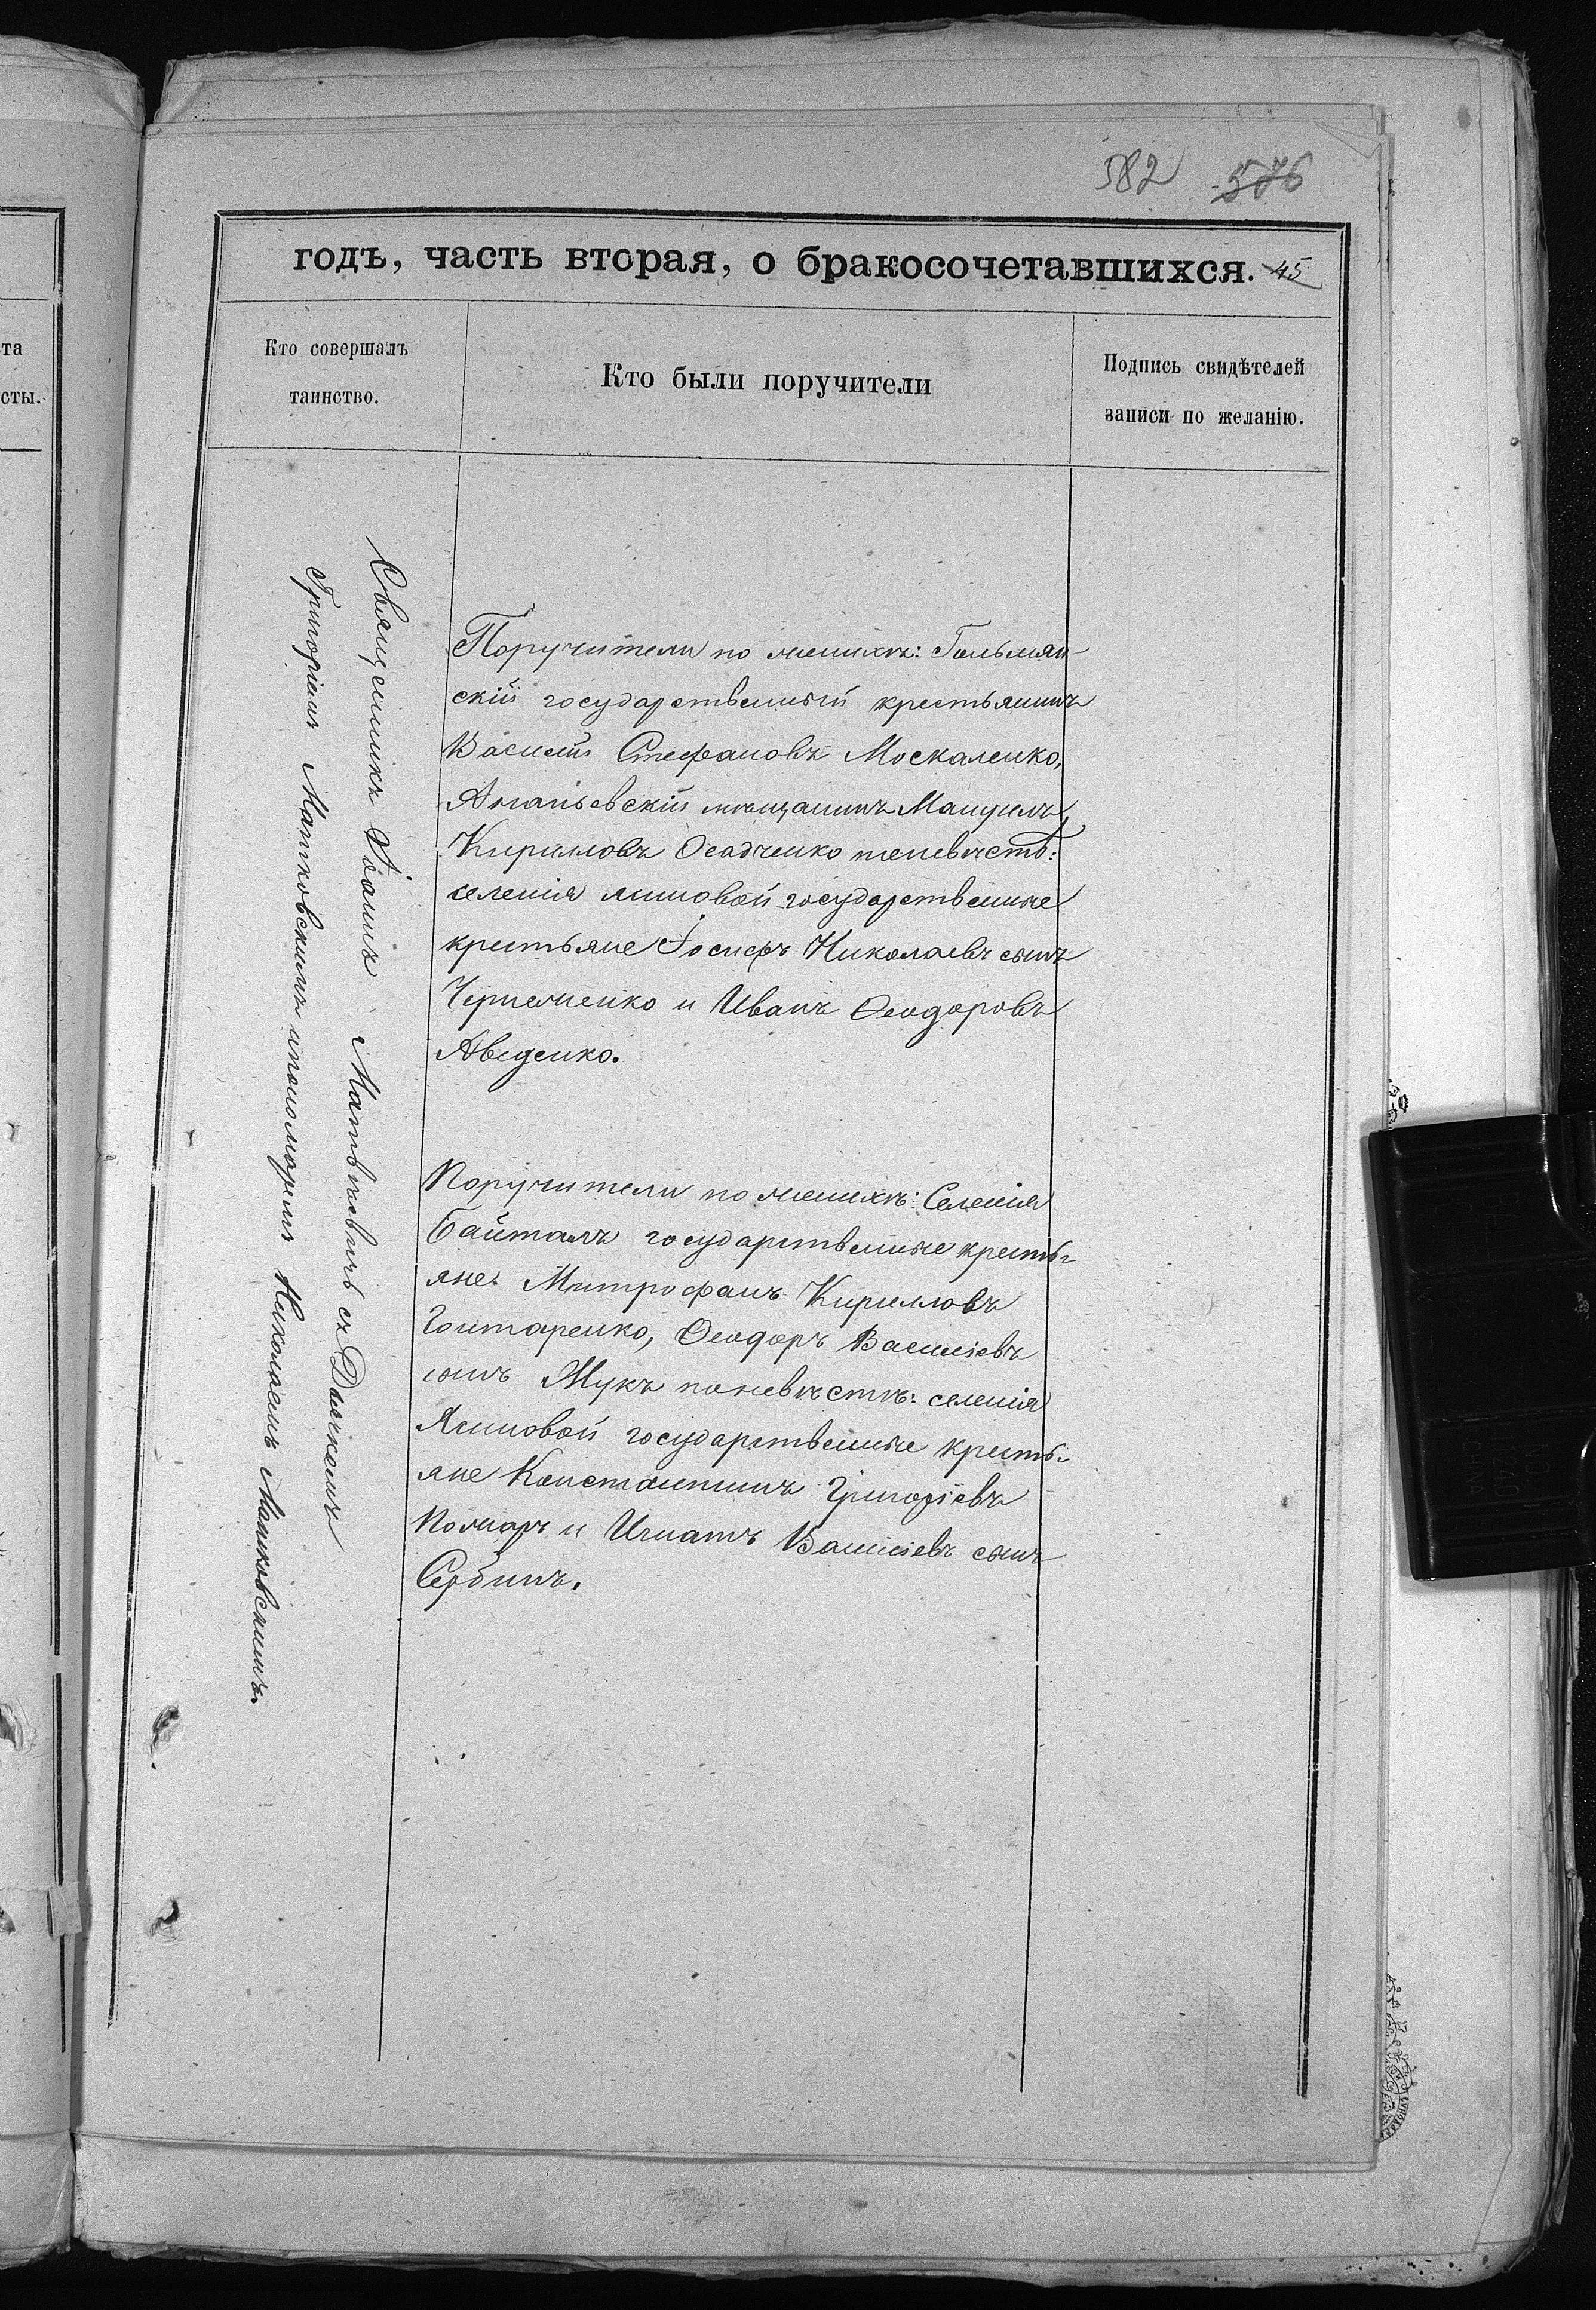 582 576
годъ, часть вторая, о бракосочетавшихся. 45
Кто совершалъ
таинство.
Кто были поручители
Подпись свидѣтелей
записи по желанію.
та
сты.
Священникъ Іоаннъ Матвѣевичъ съ Дьячкомъ
Григоріемъ Матковскимъ и пономаремъ Николаемъ Матковскимъ.
Поручители по женихѣ: Гальман-
скій государственный крестьянинъ
Василій Стефановъ Москаленко,
Ананьевскій мѣщанинъ Мануилъ
Кириловъ Осадченко по невѣстѣ:
селенія Ясиновой государственные
крестьяне Іосифъ Николаевъ сынъ
и Иванъ Ѳеодоровъ
Аведенко.
Поручители по женихѣ: Селенія
Байталъ государственные кресть-
яне Митрофанъ Кирилловъ
Гонтаренко, Ѳеодоръ Василіевъ
сынъ Мукъ по невѣстѣ: селенія
Ясиновой государственные кресть-
яне Константинъ Григоріевъ
и Игнатъ Василіевъ сынъ
Сербинъ.